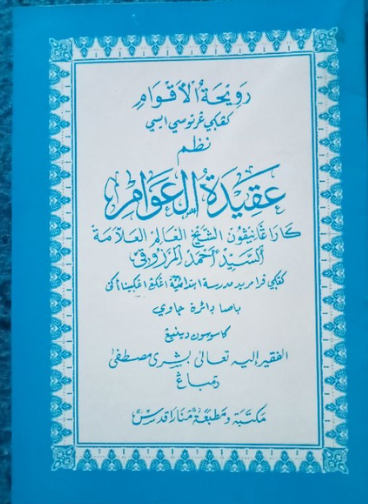 رويحة الأقوام
كڠكي غرتوسي ايسي
نظم
عقيدة العوام
كاراڠانيڤون الشيخ العالم العلامة
السيد أحمد المرزوقي
كڠكي فرا مريد مدرسة ابتدائية
باهسا دائرة جاوي
كاسوسون دينيڠ
الفقير إليه تعالى بشرى مصطفى
رمباڠ
مكتبة ومطبعة منارا قدس